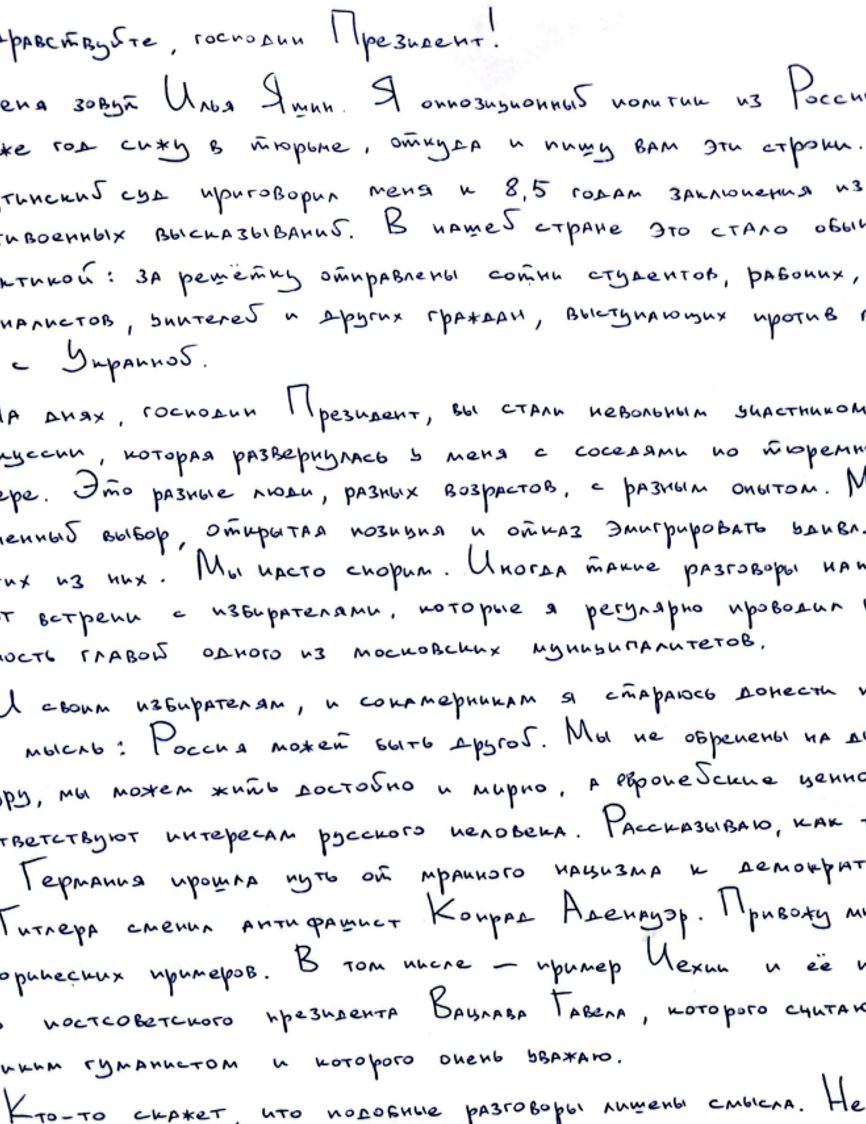 дравствуйте, господин Президент!
еня зовут Илья Яшин. Я оппозиционный политик из Росси
же год сижу в тюрьме, откуда и пишу вам эти строки.
тинский суд приговорил меня к 8,5 годам заключения из
тивоенных высказываний. В нашей стране это стало обы
ктикой: за решётку отправлены сотни студентов, рабочих,
налистов, учителей и других граждан, выступающих против
с Украиной.
а днях, господин Президент, вы стали невольным участником
куссии, которая развернулась у меня с соседями по тюремн
ере. Это разные люди, разных возрастов, с разным опытом. М
енный выбор, открытая позиция и отказ эмигрировать удивл
гих из них. Мы часто спорим. Иногда такие разговоры нап
т встречи с избирателями, которые я регулярно проводил
ность главой одного из московских муниципалитетов.
И своим избирателям, и сокамерникам я стараюсь донести
мысль: Россия может быть другой. Мы не обречены на ди
уру, мы можем жить достойно и мирно, а европейские ценно
тветствуют интересам русского человека. Рассказываю, как
Германия прошла путь от мрачного нацизма к демократ
Гитлера сменил антифашист Конрад Аденауэр. Привожу м
орических примеров. В том числе – пример Чехии и её
постсоветского президента Вацлава Гавела, которого считаю
иким гуманистом и которого очень уважаю.
Кто-то скажет, что подобные разговоры лишены смысла. Не